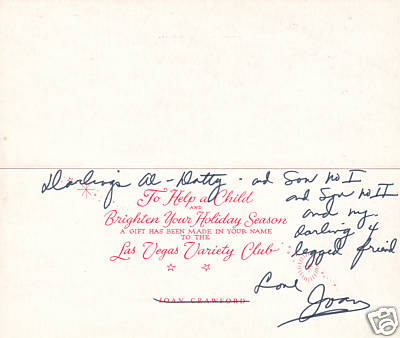 Darlings Al - Dotty - ad Son No I
To Help a Child
AND
and Son No II
Brighten Your Holiday Season
and my
A GIFT HAS BEEN MADE IN YOUR NAME
darling 4
TO THE
legged friend
Las Vegas Variety Club
Love
Joan
JOAN CRAWFORD